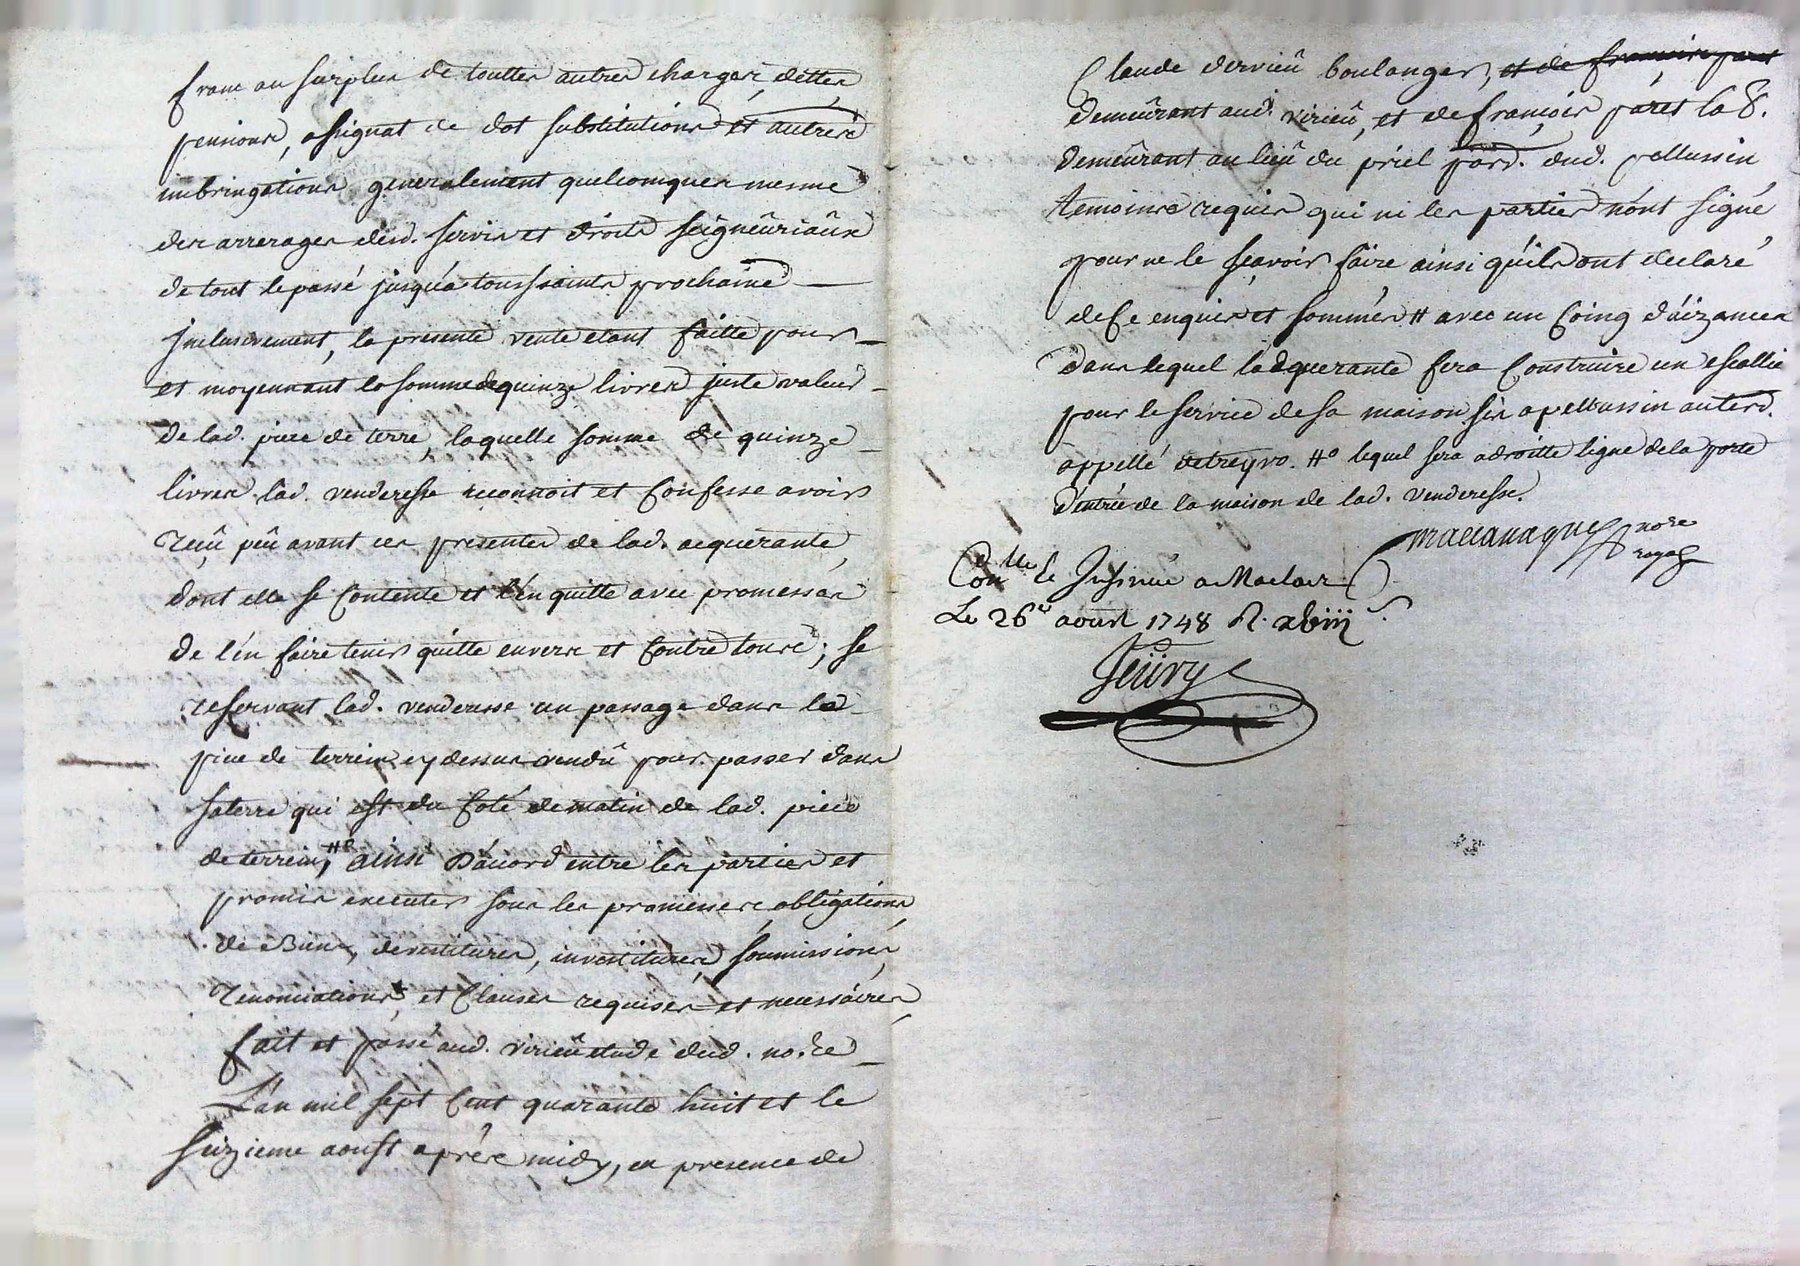 franc au surplus de touttes autres charges, dettes,
pensions, assignat de dot substitutions et autres
imbringations generalement quelconques mesme
des arrerages desd. servis et droits seigneûriaûx
de tout le passé jusqu'a toussaints prochaine
inclusivement, la presente vente etant faitte pour
et moyennant la somme de quinze livres juste valeur
de lad. piece de terre, laquelle somme de quinze
livres lad. venderesse reconnoit et confesse avoir
reçû peû avant ces presentes de lad. acquerante,
dont elle se contente et l'en quitte avec promesses
de l'en faire tenir quitte envers et contre tous; se
reservant lad. venderesse un passage dans la
piece de terrein cy dessus vendû pour passer dans
sa terre qui est du coté de matin de lad. piece
de terrein, #e ainsi d'acord entre les parties et
promis executer sous les promesses obligations
de biens, devestitures, investitures, soumissions,
renonciations, et clauses requises et necessaires
fait et passé aud. virieû etude dud. no.re
L'an mil sept cent quarante huit et le
seizieme aoust après midy, en presence de
Claude dervieû boulanger, et de françois paret
demeûrant aud. virieû, et de françois paret lab.
demeûrant au lieû du priel parr. dud. pellussin
temoins requis qui ni les parties n'ont signé
pour ne le sçavoir faire ainsi qu'ils ont declaré
de ce enquis et sommés # avec un coing d'aizances
dans lequel l'adquerante fera construire un escallie
pour le service de sa maison size a pellussin au terr.
appellé detreyvo. #e lequel sera a droitte ligne de la porte
d'entrée de la maison de lad. venderesse.
nore
royal
Con.lle & Insinué a Maclas
Le 26e aoust 1748 R. xviij s.